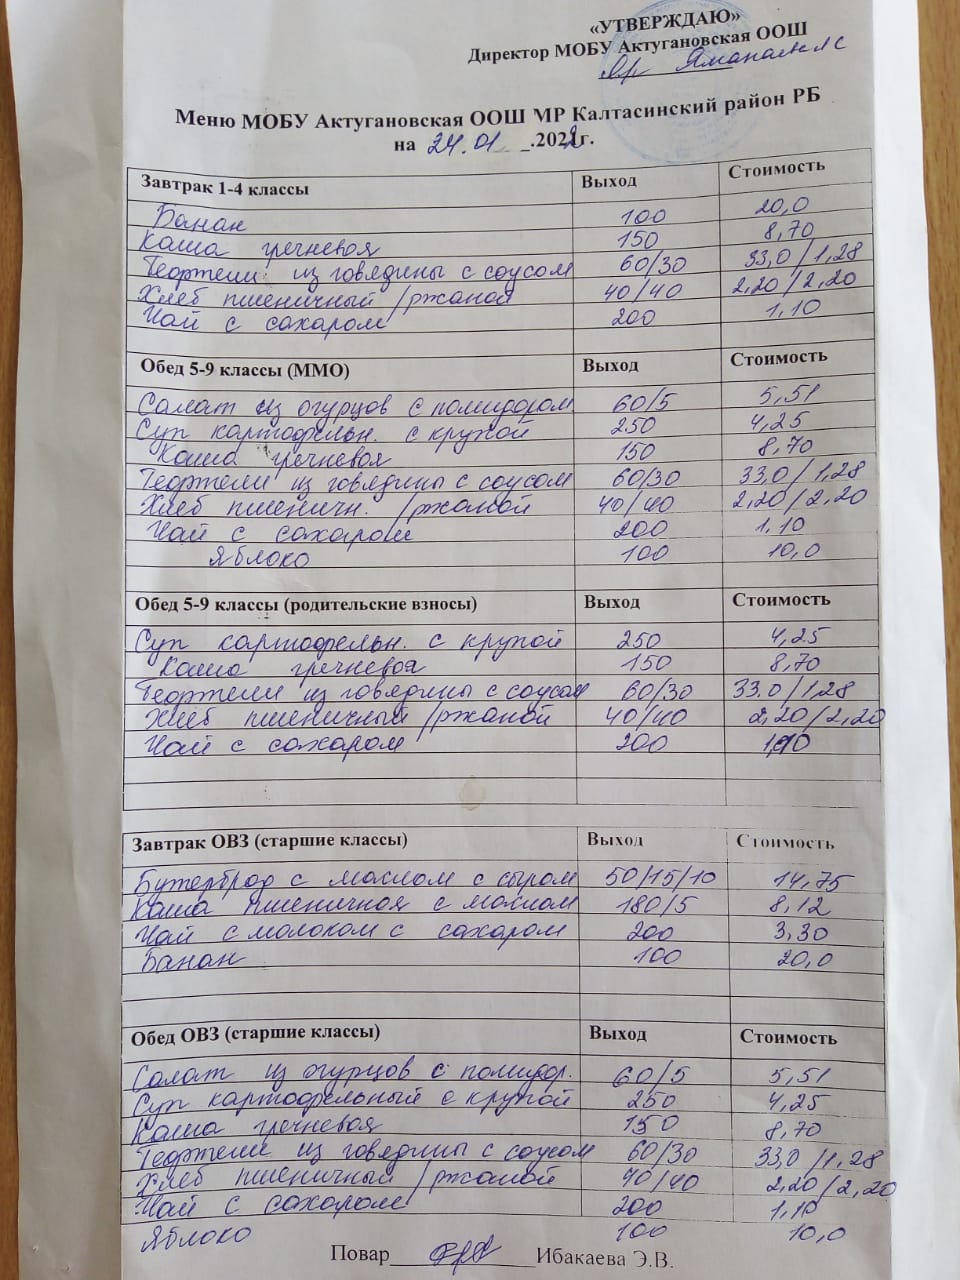 «УТВЕРЖДАЮ»
Директор МОБУ Актугановская ООШ
Яманаева Л С
Меню МОБУ Актугановская ООШ МР Калтасинский район РБ
на 24.01 .2022г.
Завтрак 1-4 классы Выход Стоимость
Банан 100 20,0
Каша гречневая 150 8,70
Тефтели из говядины с соусом 60/30 33,0/1,28
Хлеб пшеничный/ржаной 40/40 2,20/2,20
Чай с сахаром 200 1,10
Обед 5-9 классы (ММО) Выход Стоимость
Салат из огурцов с помидором 60/5 5,51
Суп картофельн. с крупой 250 4,25
Каша гречневая 150 8,70
Тефтели из говядины с соусом 60/30 33,0/1,28
Хлеб пшеничн. /ржаной 40/40 2,20/2,20
Чай с сахаром 200 1,10
Яблоко 100 10,0
Обед 5-9 классы (родительские взносы) Выход Стоимость
Суп картофельн. с крупой 250 4,25
Каша гречневая 150 8,70
Тефтели из говядины с соусом 60/30 33.0/1,28
Хлеб пшеничный/ржаной 40/40 2,20/2,20
Чай с сахаром 200 1,10
Завтрак ОВЗ (старшие классы) Выход Стоимость
Бутерброд с маслом с сыром 50/15/10 14,75
Каша пшеничная с маслом 180/5 8,12
Чай с молоком с сахаром 200 3,30
Банан 100 20,0
Обед ОВЗ (старшие классы) Выход Стоимость
Салат из огурцов с помидор. 60/5 5,51
Суп картофельный с крупой 250 4,25
Каша гречневая 150 8,70
Тефтели из говядины с соусом 60/30 33,0/1,28
Хлеб пшеничный/ржаной 40/40 2,20/2,20
Чай с сахаром 200 1,10
Яблоко 100 10,0
Повар Ибакаева Э.В.